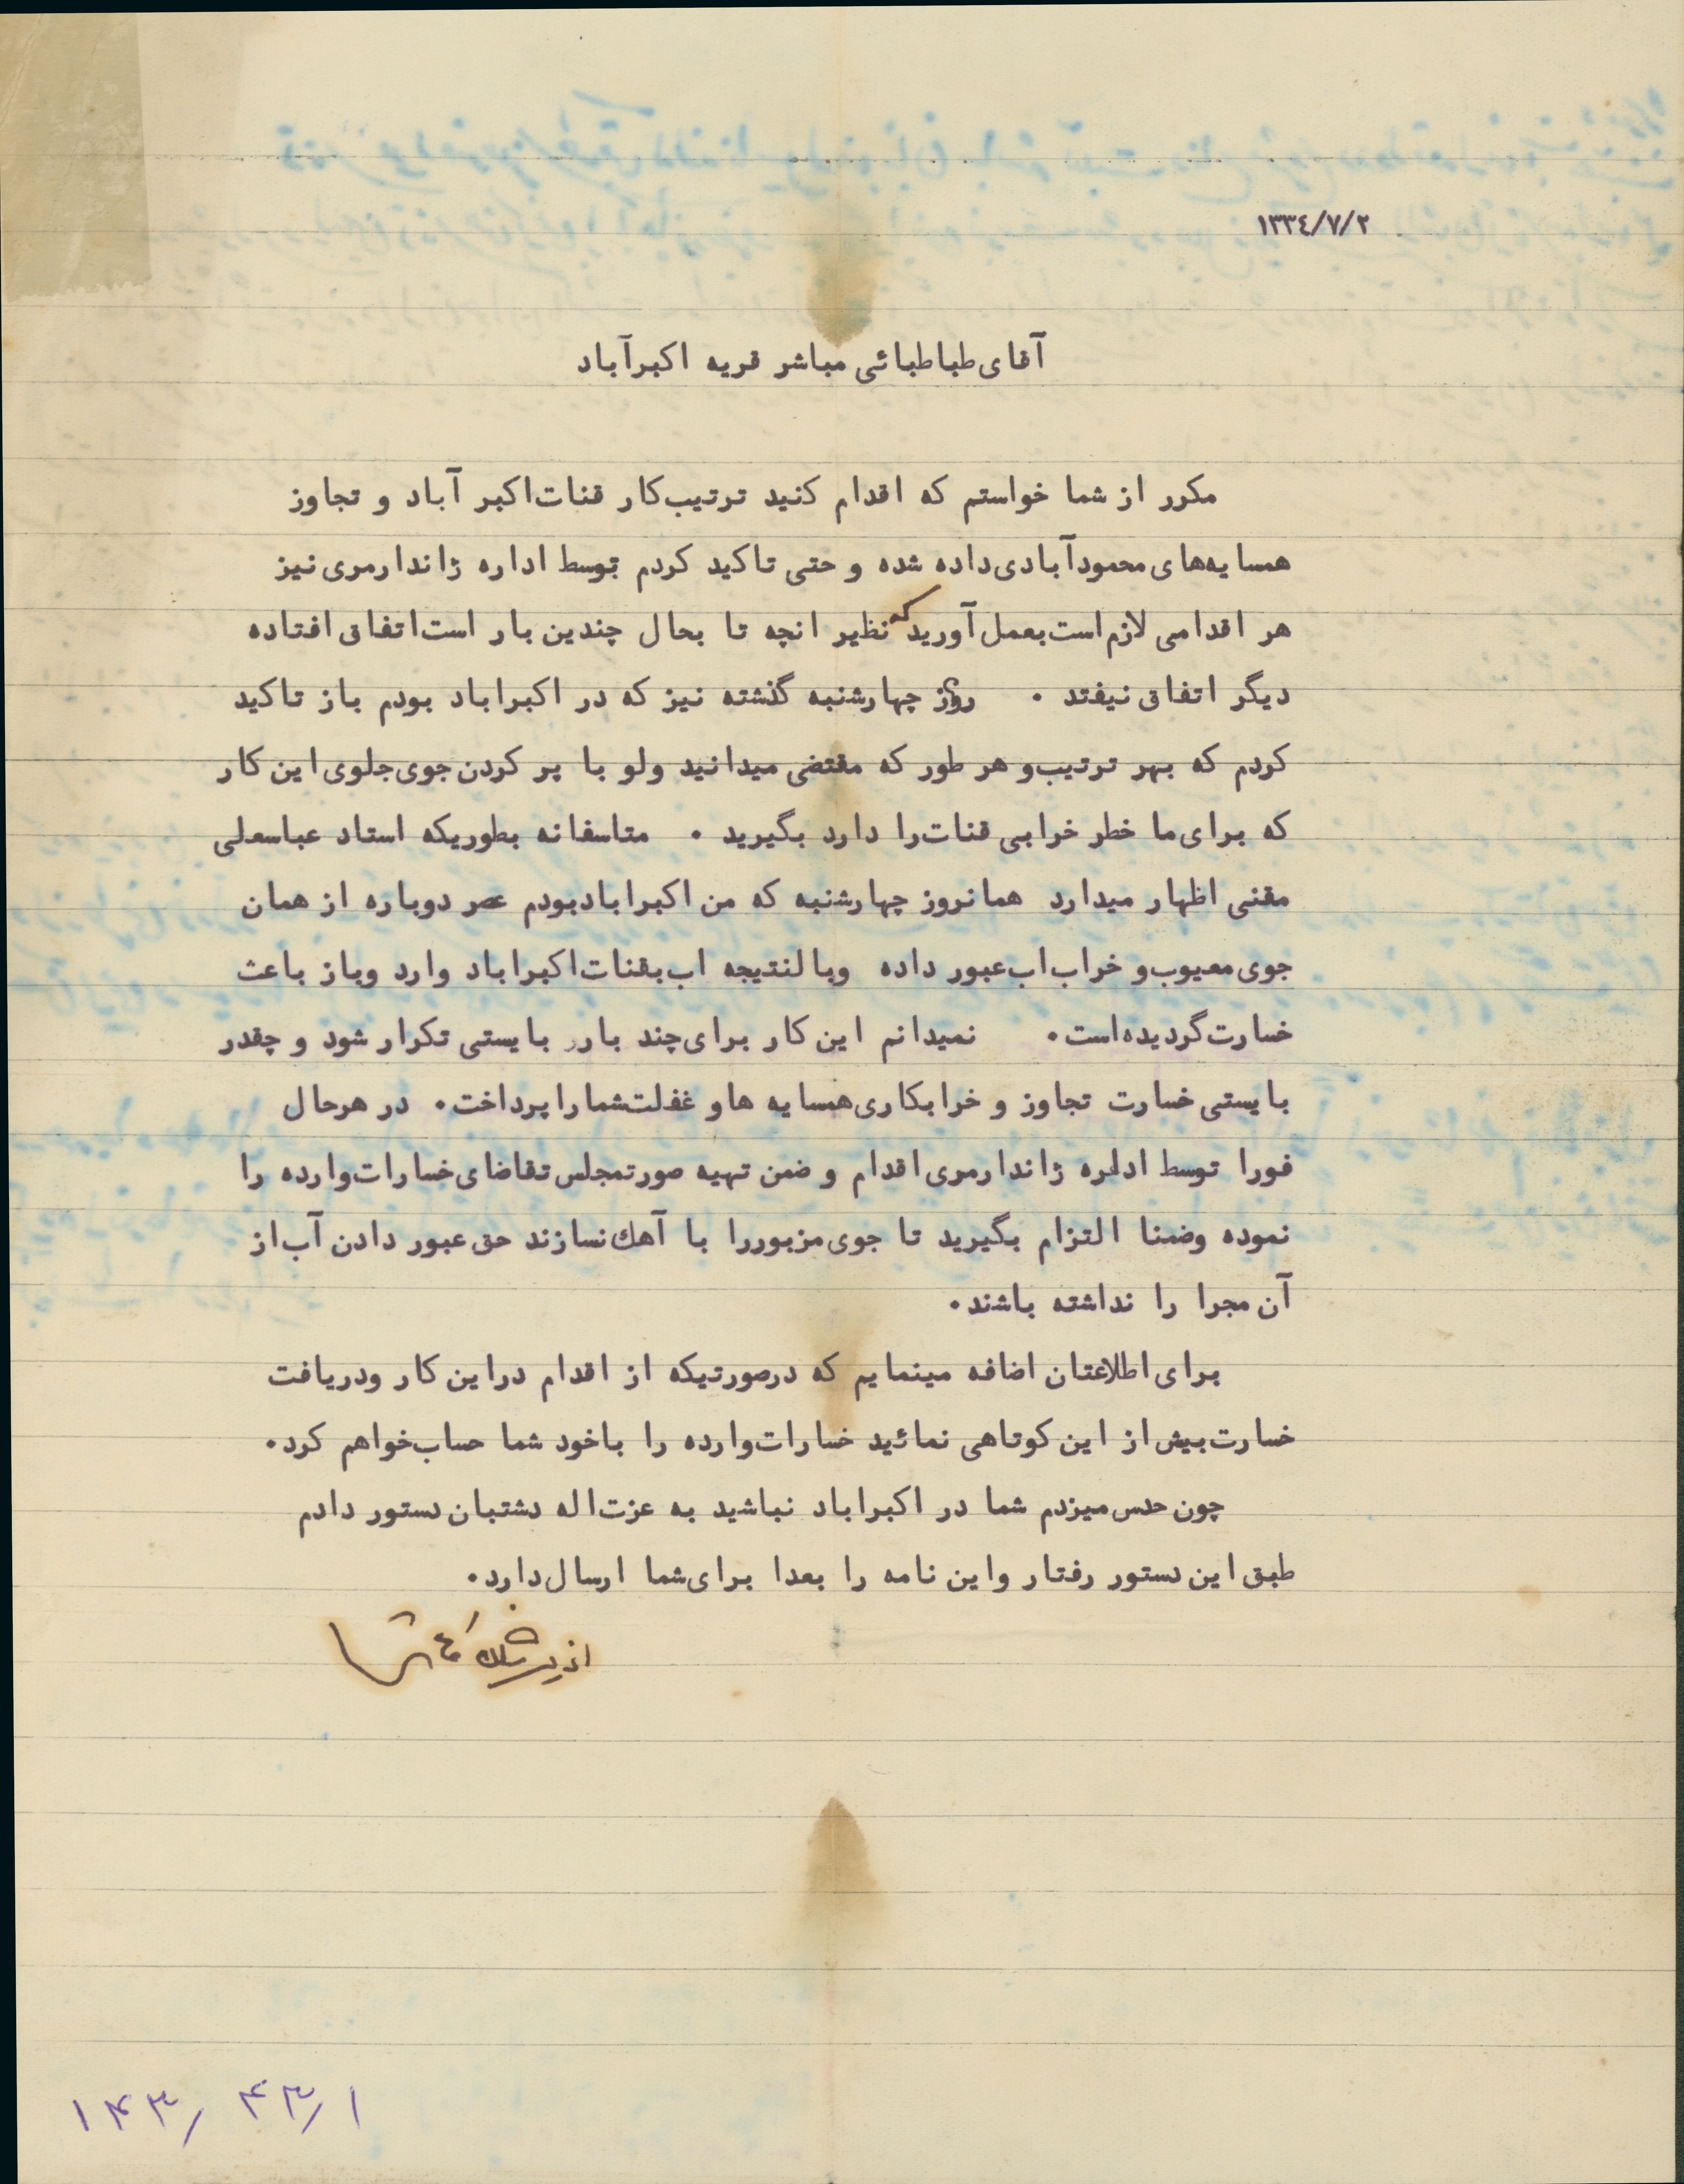 ۱۳۳٤/۷/۲
آقای طباطبائی مباشر قریه اکبرآباد
مکرر از شما خواستم که اقدام کنید ترتیب کار قنات اکبر آباد و تجاوز
همسایه‌های محمودآبادی داده شده و حتی تاکید کردم توسط اداره ژاندارمری نیز
هر اقدامی لازم است بعمل آورید که نظیر انچه تا بحال چندین بار است اتفاق افتاده
دیگر اتفاق نیفتد . روز چهارشنبه گذشته نیز که در اکبراباد بودم باز تاکید
کردم که بهر ترتیب و هر طور که مقتضی میدانید ولو با پر کردن جوی جلوی این کار
که برای ما خطر خرابی قنات را دارد بگیرید . متاسفانه بطوریکه استاد عباسعلی
مقنی اظهار میدارد همانروز چهارشنبه که من اکبراباد بودم عصر دوباره از همان
جوی معیوب و خراب اب عبور داده وبا لنتیجه اب بقنات اکبراباد وارد وباز باعث
خسارت گردیده است . نمیدانم این کار برای چند بار بایستی تکرار شود و چقدر
بایستی خسارت تجاوز و خرابکاری همسایه ها و غفلت شما را پرداخت . در هرحال
فورا توسط اداره ژاندارمری اقدام و ضمن تهیه صورتمجلس تقاضای خسارات وارده را
نموده وضمنا التزام بگیرید تا جوی مزبور را با آهك نسازند حق عبور دادن آب از
آن مجرا را نداشته باشند .
برای اطلاعتان اضافه مینمایم که درصورتیکه از اقدام دراین کار ودریافت
خسارت بیش از این کوتاهی نمائید خسارات وارده را باخود شما حساب خواهم کرد .
چون حدس میزدم شما در اکبراباد نباشید به عزت اله دشتبان دستور دادم
طبق این دستور رفتار واین نامه را بعدا برای شما ارسال دارد .
۱۴۳/ ۴۳/۱